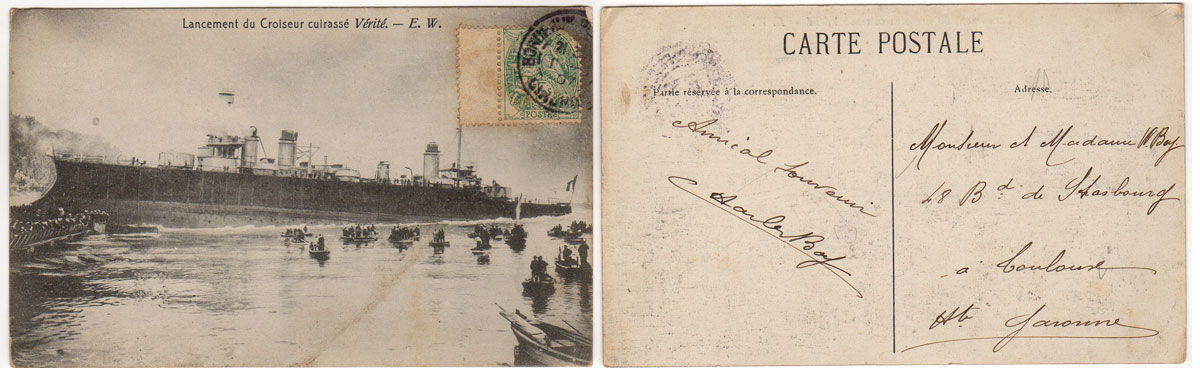 Lancement du Croiseur cuirassé Vérité. — E. W.
POSTES
CARTE POSTALE
Partie réservée à la correspondance.
Adresse.
Amical Souvenir
Charles
Monsieur et Madame
48 Bd de Strasbourg
à Toulouse
Hte Garonne